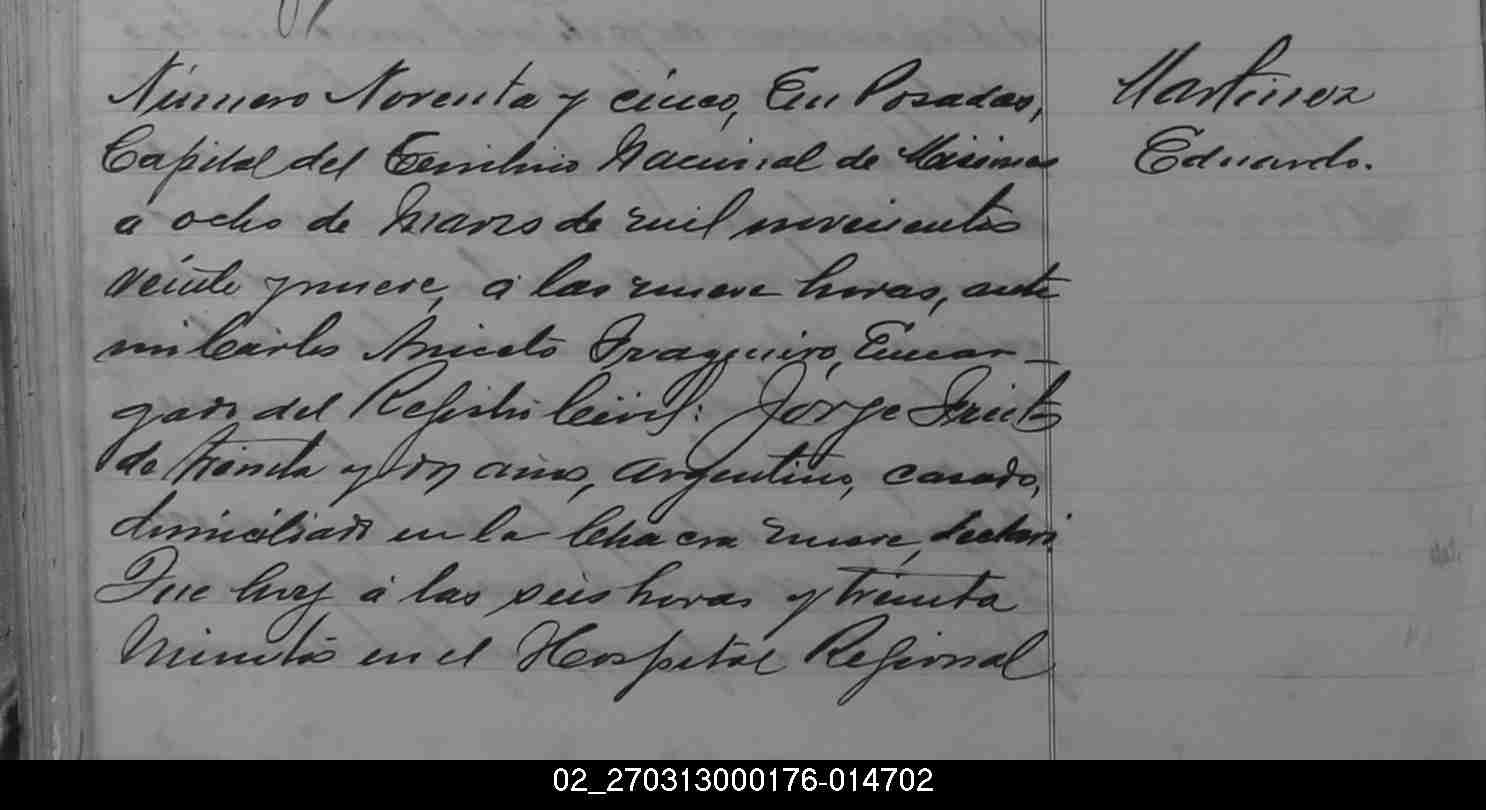 Número Noventa y cinco, En Posadas,
Capital del Territorio Nacional de Misiones
a ocho de Marzo de mil novecientos
veinte y nueve, á las nueve horas, ante
mi Carlos Aniceto Fragueiro, Encar-
gado del Registro Civil: Jorge
de treinta y años, argentino, casado,
domiciliado en la Chacra nueve, declaró:
Que hoy á las seis horas y treinta
Minutos en el Hospital Regional
Martinez
Eduardo.
02_270313000176-014702